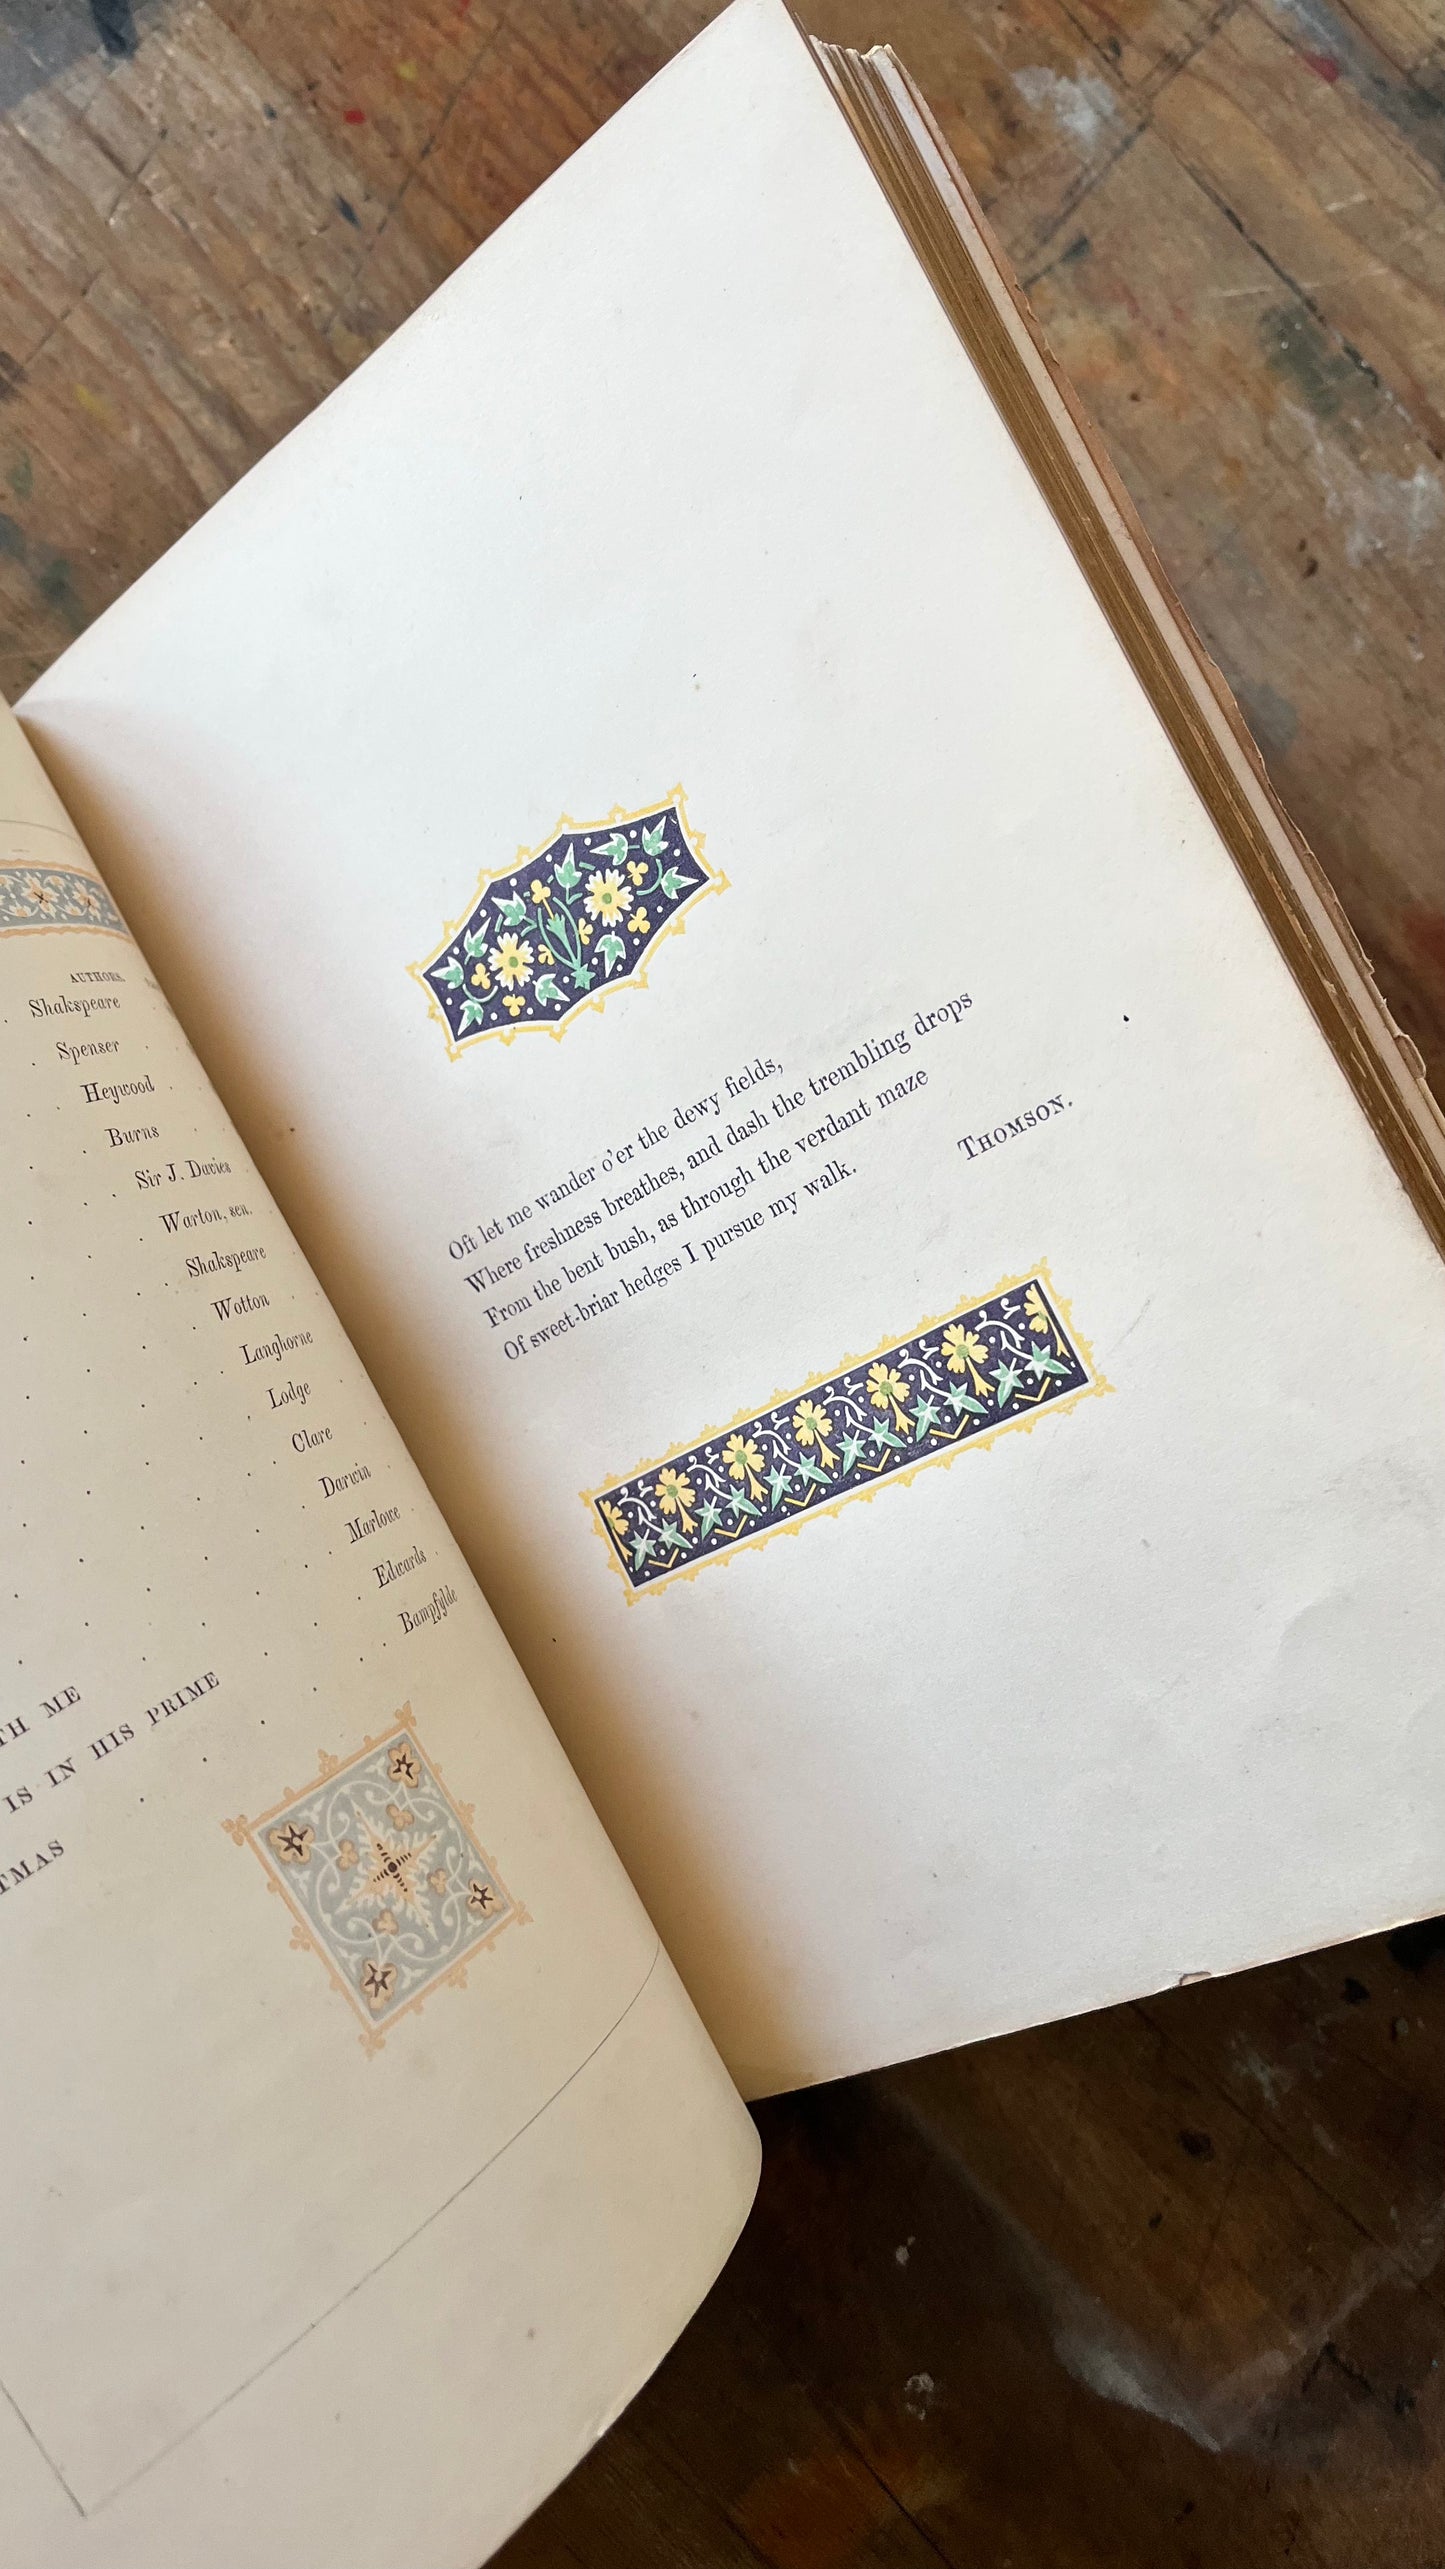 AUTHORS.
Shakspeare
Spenser
Heywood
Burns
Sir J. Davies
Warton, sen.
Shakspeare
Wotton
Langhorne
Lodge
Clare
Darwin
Marlowe
Edwards
Bampfylde
ME
IS IN HIS PRIME
Oft let me wander o'er the dewy fields,
Where freshness breathes, and dash the trembling drops
From the bent bush, as through the verdant maze
Of sweet-briar hedges I pursue my walk.
THOMSON.